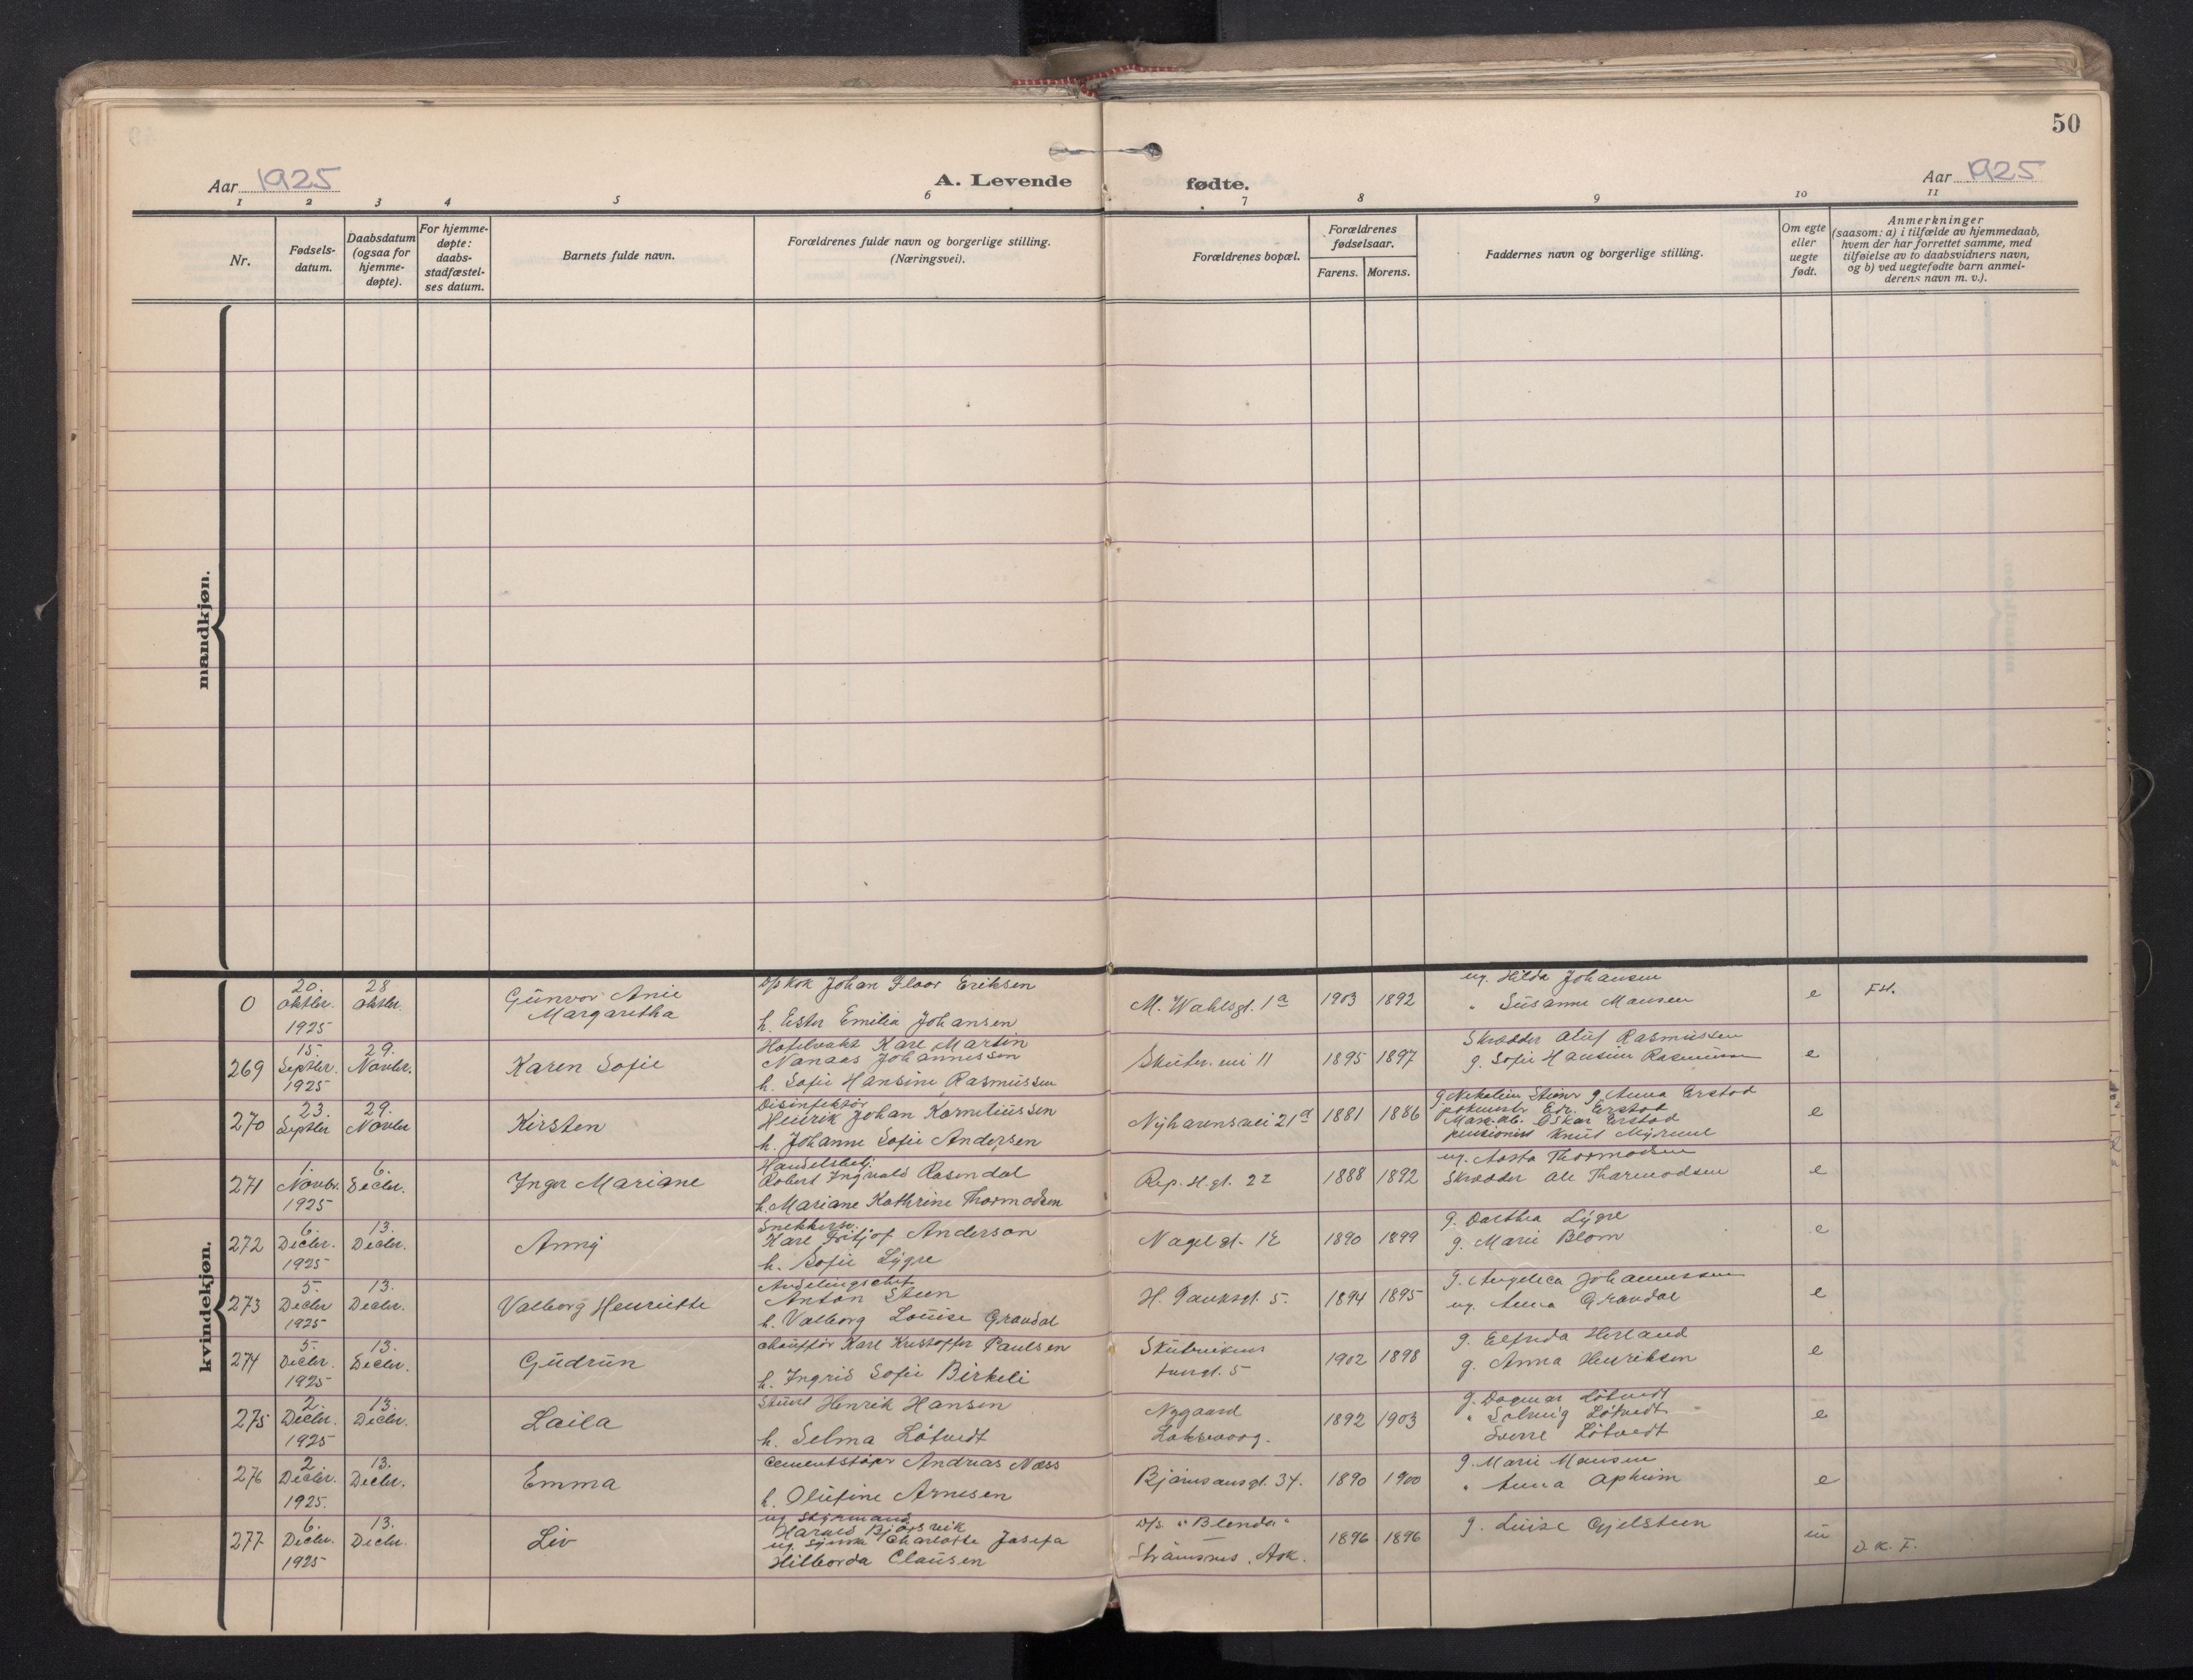 50
Aar 1925
A. Levende fødte.
Aar 1925
1 2 3 4 5 6 7 8 9 10 11
Nr.
Fødsels-
datum.
Daabsdatum
(ogsaa for
hjemme-
døpte).
For hjemme-
døpte:
daabs-
stadfæstel-
ses datum.
Barnets fulde navn.
Forældrenes fulde navn og borgerlige stilling.
(Næringsvei).
Forældrenes bopæl.
Forældrenes
fødselsaar.
Farens. Morens.
Faddernes navn og borgerlige stilling.
Om egte
eller
uegte
født.
Anmerkninger
(saasom: a) i tilfælde av hjemmedaab,
hvem der har forrettet samme, med
tilføielse av to daabsvidners navn,
og b) ved uegtefødte barn anmel-
derens navn m. v.).
mandkjøn.
kvindekjøn.
0
20.
Oktbr.
1925
28
Oktbr.
Gunvor Anie
Margaretha
D/s kok Johan Floor Eriksen
h. Ester Emilia Johansen
M. Wahlsgt. 1a
1903 1892
ug. Hilda Johansen
" Susanne Mansen
e
F.H.
269
15.
Septbr.
1925
29.
Novbr.
Karen Sofie
Hotelvakt Karl Martin
Nanaas Johannessen
h. Sofie Hansine Rasmussen
Skutev. vei 11
1895 1897
Skrædder Oluf Rasmussen
g. Sofie Hansine Rasmussen
e
270
23.
Septbr
29.
Novbr
Kirsten
Disinfektør
Henrik Johan Korneliussen
h. Johanne Sofie Andersen
Nyhavnsvei 21d
1881 1886
g. Nikoline Steiner g. Anna Erstad
Edv. Erstad
Mask. Oskar Erstad
pensionist Knut Myrmel
e
271
1.
Novbr.
1925
6.
Decbr.
Inger Mariane
Handelsbetj.
Robert Ingvald Rosendal
h. Mariane Kathrine Thormodsen
Rep. H. gt. 22
1888 1892
ug. Aasta Thormodsen
Skrædder Ole Thormodsen
e
272
6.
Decbr.
1925
13.
Decbr.
Anny
Snekkersv.
Karl Fritjof Anderson
h. Sofie Lygre
Nagelgt. 12
1890 1899
g. Dorthea Lygre
g. Marie Blom
e
273
5.
Decbr
1925
13.
Decbr.
Valborg Henriette
Avdelingschef
Anton Steen
h. Valborg Louise Grandal
H. Tanksgt. 5.
1894 1895
g. Angelica Johannessen
ug. Anna Grandal
e
274
5.
Decbr.
1925
13.
Decbr.
Gudrun
Chauffør Karl Kristoffer Paulsen
h. Ingrid Sofie Birkeli
Skuteviken
5
1902 1898
g. Elfrida Herland
g. Anna Henriksen
e
275
2.
Decbr.
1925
13.
Decbr.
Laila
Stuert Henrik Hansen
h. Selma Løtvedt
Nygaard
Laksevaag.
1892 1903
g. Dagmar Løtvedt
" Solveig Løtvedt
Sverre Løtvedt
e
276
2.
Decbr.
1925.
13.
Decbr.
Emma
Cementstøper Andreas Næss
h. Olufine Arnesen
Bjørnsonsgt. 34.
1890 1900
g. Marie Monsen
" Anna Opheim
e
277
6.
Decbr.
1925
13.
Decbr.
Liv
ug Styrmand
Harald Bjørsvik
ug. Charlotte Josefa
Hilborda Clausen
D/s "Blenda"
Strømsnes, Ask.
1896 1896
g. Luise Gjelsteen
u
D. K. F.